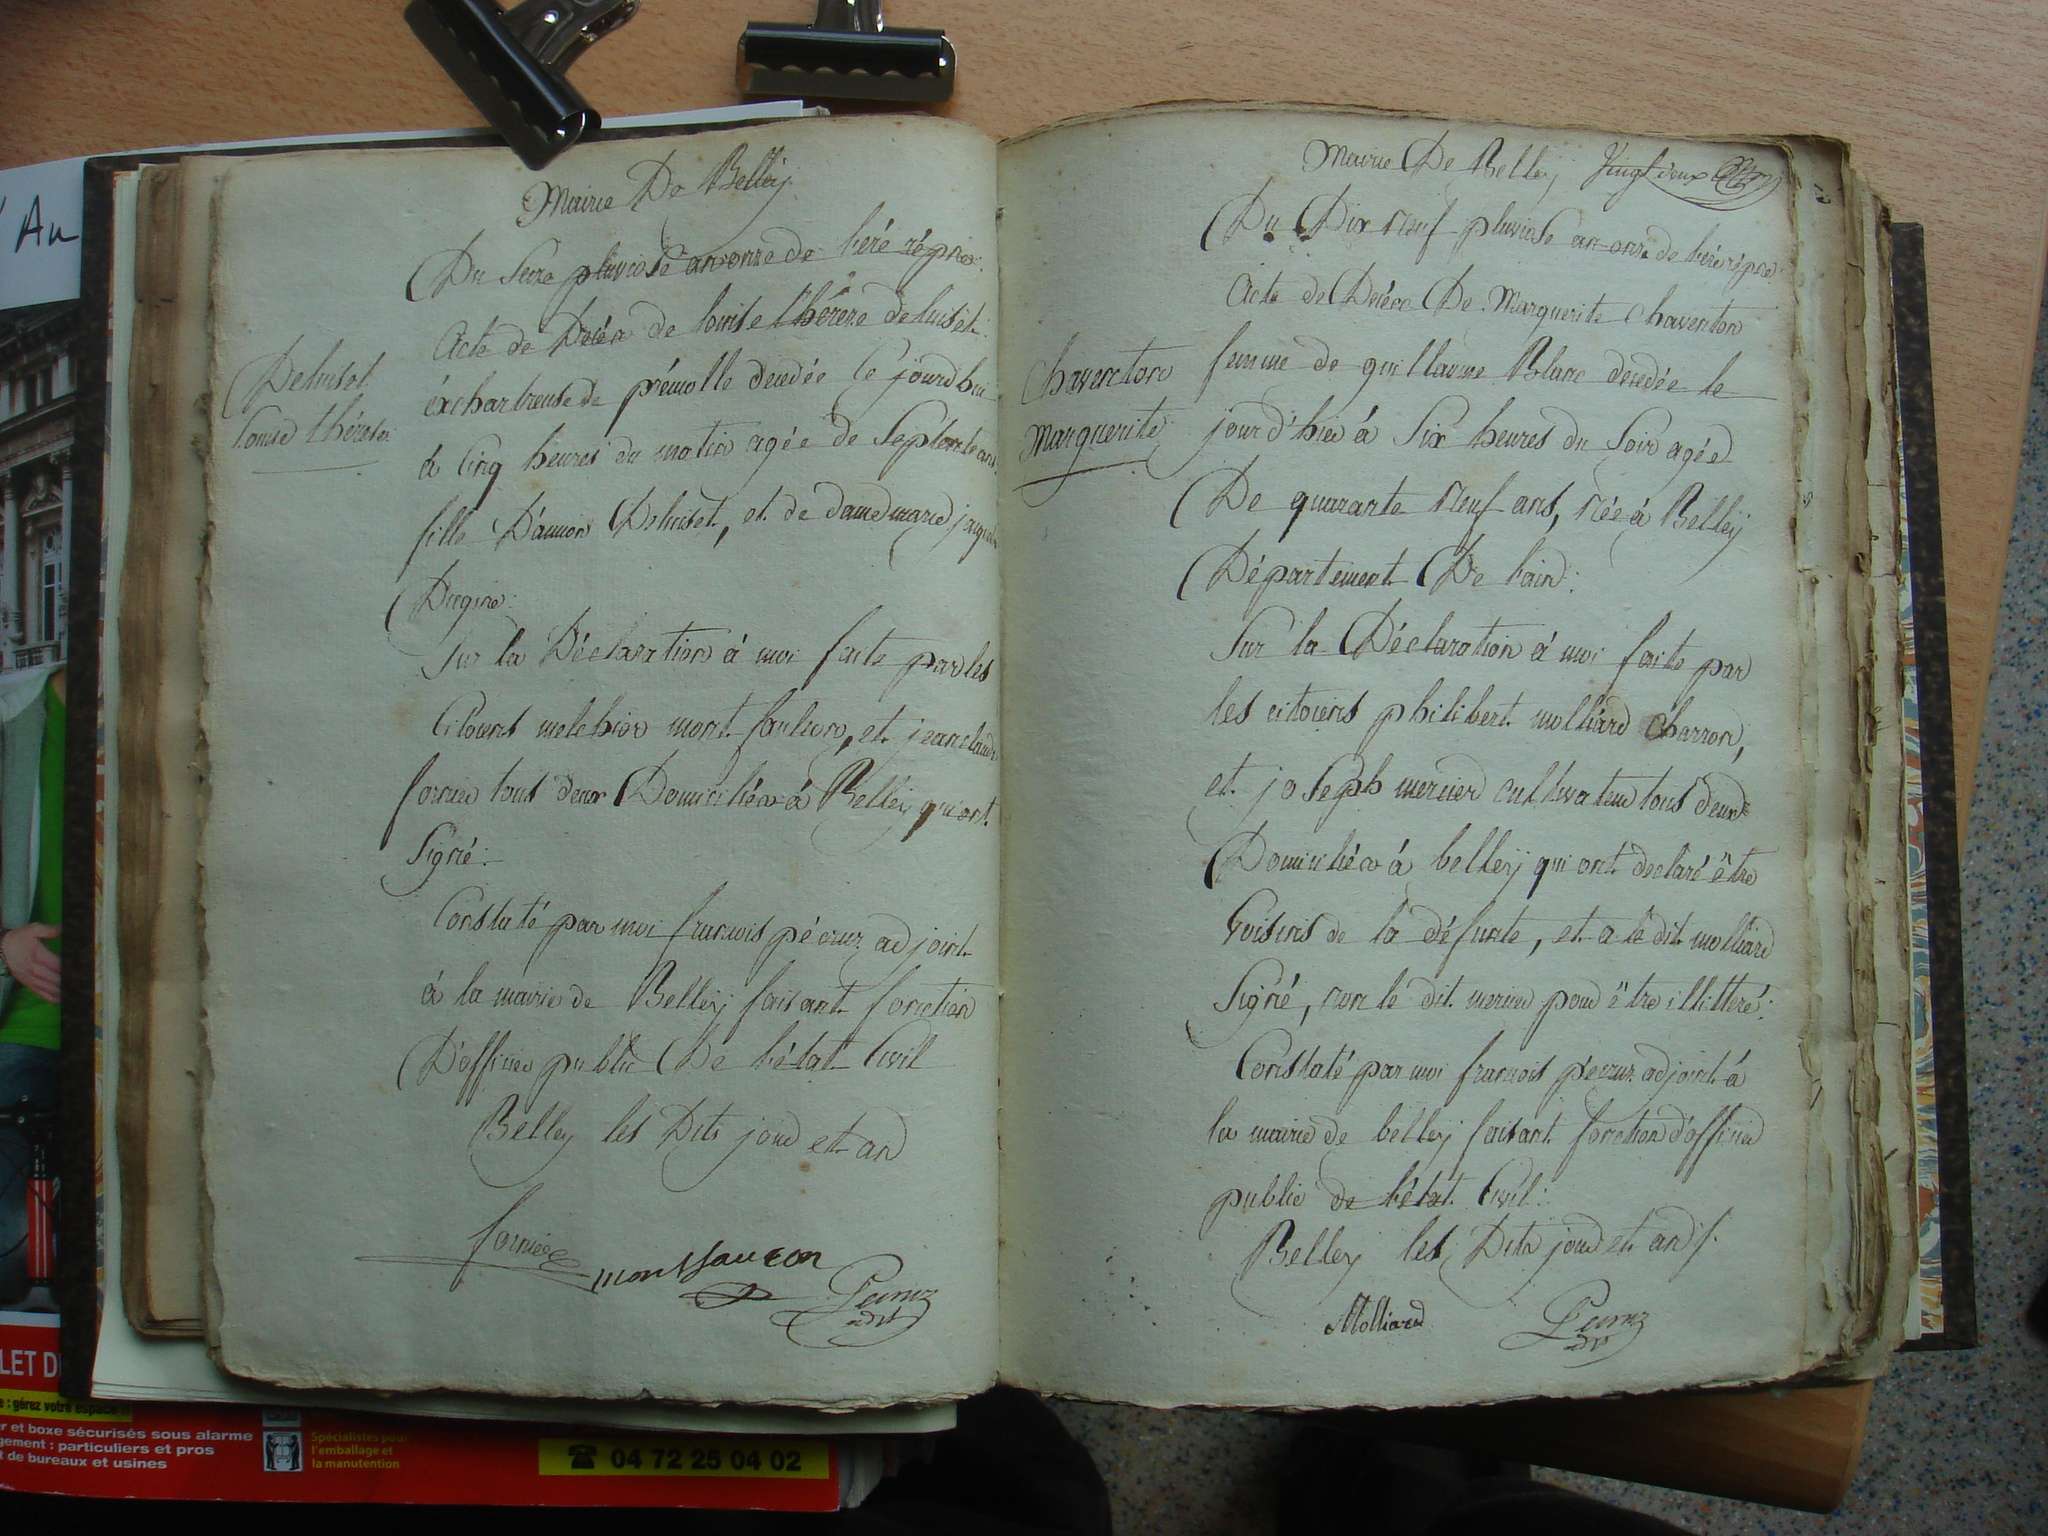 Mairie De Belleÿ
Du Seize pluviose an onze de l'ére répne:
Acte de Décès de louise thérèze deluiset
Deluiset
exchartreuse de prémolle decedée Ce jourd'hui
Louise thérèse
à Cinq heures du matin agée de Septente ans,
fille D'aimon Deluiset, et de dame marie jaque
Dugine:
Sur la Déclaration à moi faite par les
Citoiens melchior montfaulcon, et jean claude
fornier tous deux Domiciliés à Belleÿ qui ont
Signé:
Constaté par moi françois pécruz adjoint
à la mairie de Belleÿ faisant fonction
D'officier public De l'état Civil
Belley les Dits jour et an
fornier
montfaucon
Pecruz
adjt
Mairie De Belleÿ Vingt deux
Du Dix neuf pluviose an onze de l'ére répne:
Acte de Décès De Marguerite Chaventon
Chaventon
femme de guillaume Blanc decedée le
Marguerite
jour d'hier à Six heures du Soir agée
De quarante neuf ans, née à Belleÿ
Département De l'ain:
Sur la Déclaration à moi faite par
les citoiens philibert molliard charron,
et joseph mercier cultivateur tous deux
Domiciliés à belleÿ qui ont declaré être
Voisins de la défunte, et a le dit molliard
Signé, non le dit mercier pour être illitteré:
Constaté par moi françois pécruz adjoint à
la mairie de belleÿ faisant fonction d'officier
public de l'état Civil:
Belley les Dits jour et an /.
Molliard
Pecruz
adjt
Au
LET D
: gérez votre espace
r et boxe sécurisés sous alarme
gement : particuliers et pros
t de bureaux et usines
Spécialistes pour
l'emballage et
la manutention
☎ 04 72 25 04 02